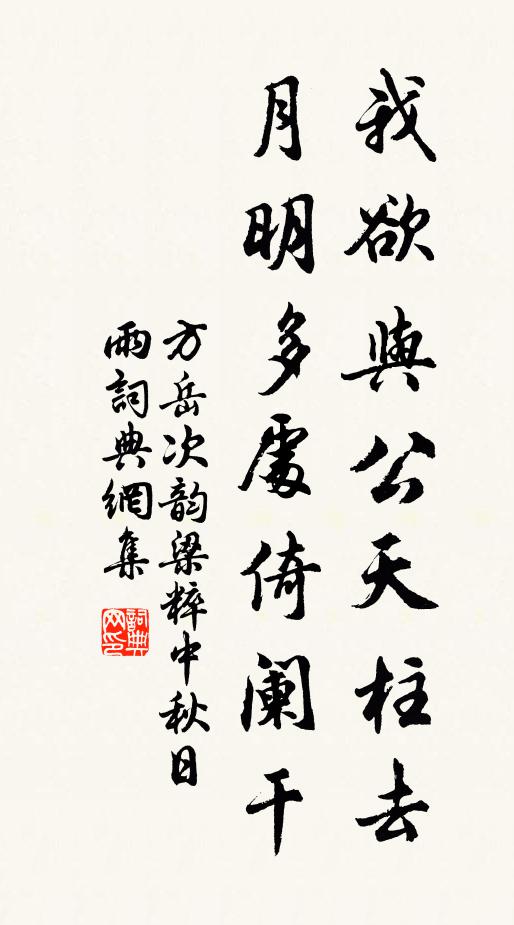 我欲與公天柱去
月明多處倚闌干
方岳次韵梁粹中秋日
雨詞典網集
詞典网印